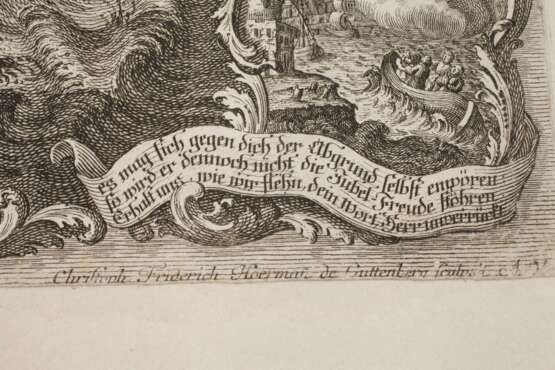 es mag sich gegen dich der Abgrund selbst empören
so wird er dennoch nicht die Jubel-Freude stöhren
Erhalt uns, wie wir flehn, dein Wort, Herr unverrückt
Christoph Friderich Hoerman de Guttenberg sculps: A. V.